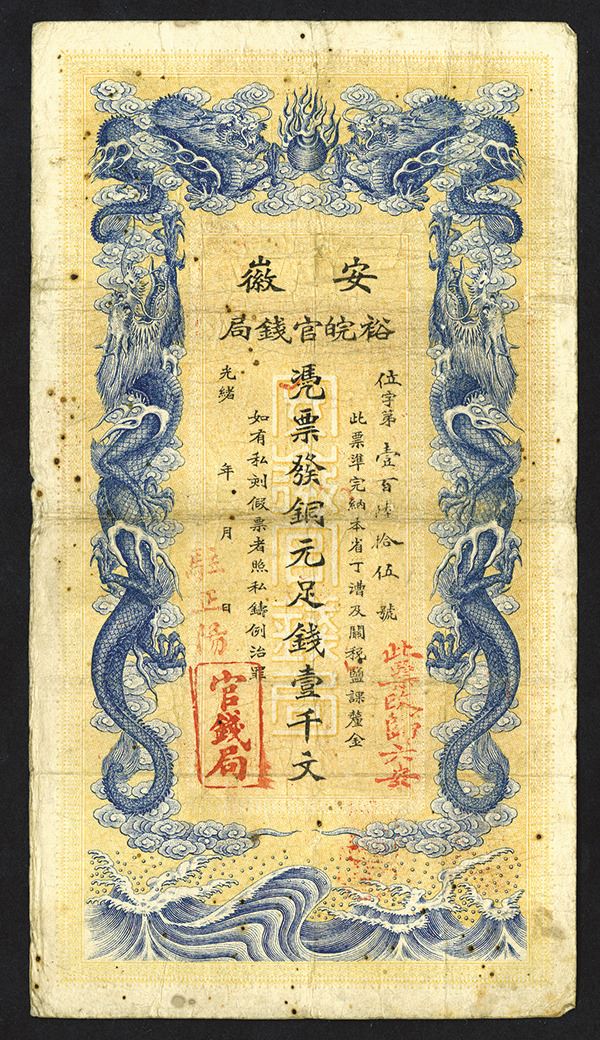 安徽
裕皖官錢局
位字第壹百陸拾伍號
此票準完納本省丁漕及關稅鹽課釐金
憑票發銅元足錢壹千文
如有私刻假票者照私鑄例治罪
光緒 年 月 日
官錢局